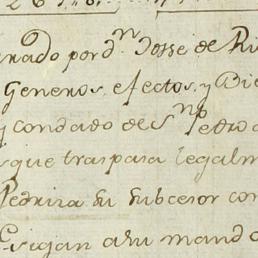 nado por dn. Josse de Ri
Generos, efectos, y Bie
y condado de Sn. Pedro
s que traspasa legalm
Pedrira su subcesor con
sigan a su mando